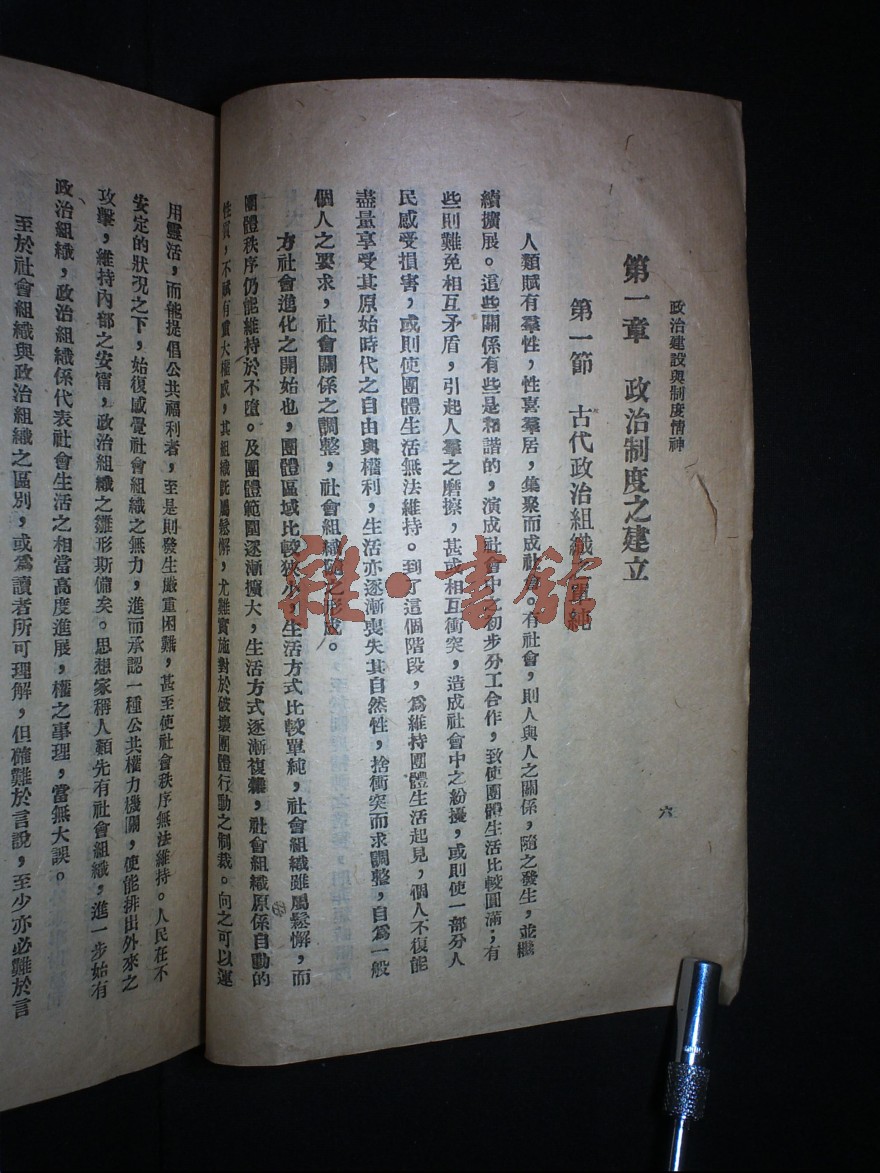 政治建設與制度精神
六
第一章　政治制度之建立
第一節　古代政治組織之單純
人類賦有羣性，性喜羣居，集聚而成社會。有社會，則人與人之關係，隨之發生，並繼
續擴展。這些關係有些是和諧的，演成社會中之初步分工合作，致使團體生活比較圓滿；有
些則難免相互矛盾，引起人羣之磨擦，甚或相互衝突，造成社會中之紛擾，或則使一部分人
民感受損害，或則使團體生活無法維持。到了這個階段，爲維持團體生活起見，個人不復能
盡量享受其原始時代之自由與權利，生活亦逐漸喪失其自然性，捨衝突而求調整，自爲一般
個人之要求，社會關係之調整，社會組織隨之形成。
方社會進化之開始也，團體區域比較狹小，生活方式比較單純，社會組織雖屬鬆懈，而
團體秩序仍能維持於不墮。及團體範圍逐漸擴大，生活方式逐漸複雜，社會組織原係自動的
性質，不賦有重大權威，其組織旣屬鬆懈，尤難實施對於破壞團體行動之制裁。向之可以運
用靈活，而能提倡公共福利者，至是則發生嚴重困難，甚至使社會秩序無法維持。人民在不
安定的狀況之下，始復感覺社會組織之無力，進而承認一種公共權力機關，使能排出外來之
攻擊，維持內部之安甯，政治組織之雛形斯備矣。思想家稱人類先有社會組織，進一步始有
政治組織，政治組織係代表社會生活之相當高度進展，權之事理，當無大誤。
至於社會組織與政治組織之區別，或爲讀者所可理解，但確難於言說，至少亦必難於言
雜·書館